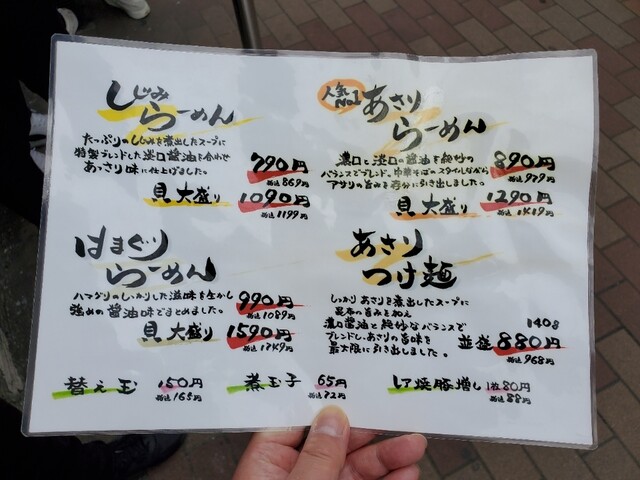 しじみ
らーめん
たっぷりのしじみを煮出したスープに
特製ブレンドした淡口醤油を合わせ
あっさり味に仕上げました。
790円
税込869円
貝大盛り 1090円
税込1199円
人気
No1
あさり
らーめん
濃口と淡口の醤油を絶妙の
バランスでブレンド。中華そばのスタイルしながら
アサリの旨みを存分に引き出しました。
890円
税込979円
貝大盛り 1290円
税込1419円
はまぐり
らーめん
ハマグリのしっかりした滋味を生かし
強めの醤油味でまとめました。
990円
税込1089円
貝大盛り 1590円
税込1749円
あさり
つけ麺
しっかりあさりを煮出したスープに
昆布の旨みを加え
濃口醤油と絶妙なバランスで
ブレンドし、あさりの旨味を
最大限に引き出しました。
140g
並盛 880円
税込968円
替え玉 150円
税込165円
煮玉子 65円
税込72円
レア焼豚増し 1枚80円
税込88円